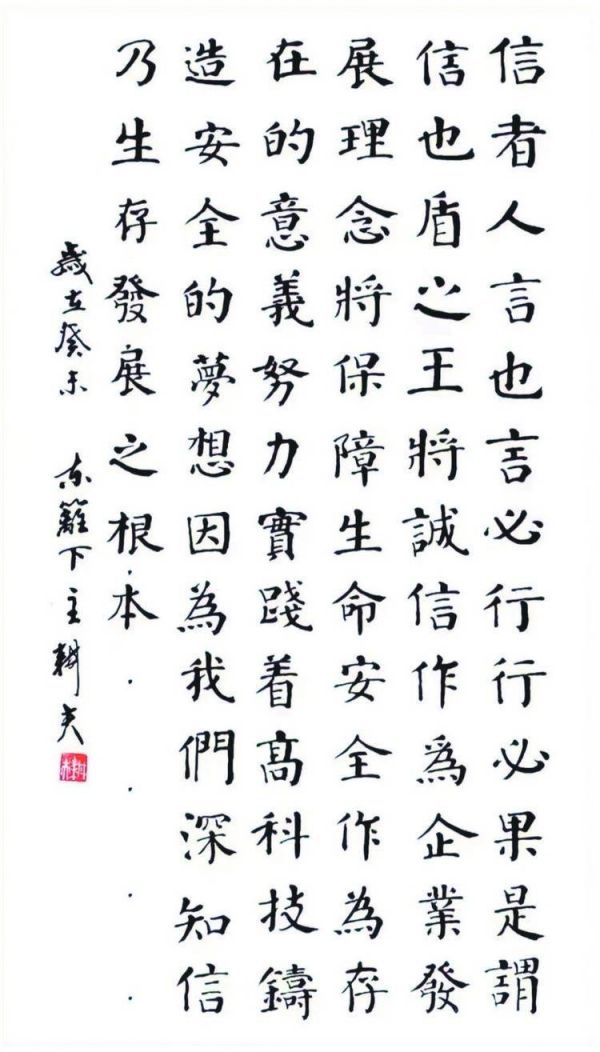 信者人言也言必行行必果是謂
信也盾之王將誠信作爲企業發
展理念將保障生命安全作為存
在的意義努力實踐着高科技鑄
造安全的夢想因為我們深知信
乃生存發展之根本
歲在癸未 东籬下主耕夫